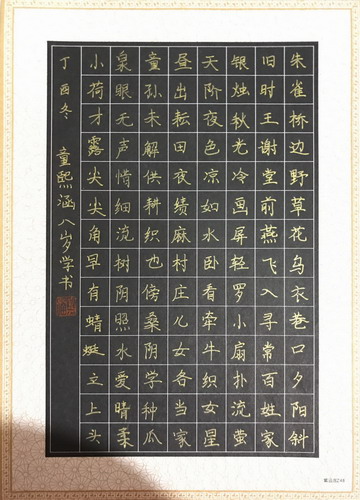 朱雀桥边野草花乌衣巷口夕阳斜
旧时王谢堂前燕飞入寻常百姓家
银烛秋光冷画屏轻罗小扇扑流萤
天阶夜色凉如水卧看牵牛织女星
昼出耘田夜绩麻村庄儿女各当家
童孙未解供耕织也傍桑阴学种瓜
泉眼无声惜细流树阴照水爱晴柔
小荷才露尖尖角早有蜻蜓立上头
丁酉冬 童熙涵八岁学书